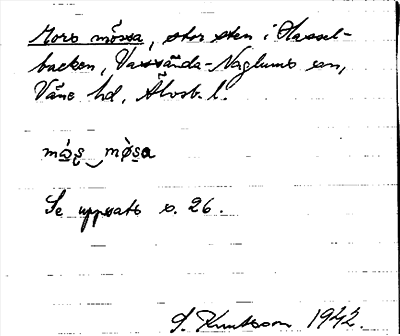 Mors mössa, stor sten i Hassel-
backen, Vassända-Naglums sn,
Väne hd, Älvsb. l.
Se uppsats s. 26.
S. Knutsson 1942.